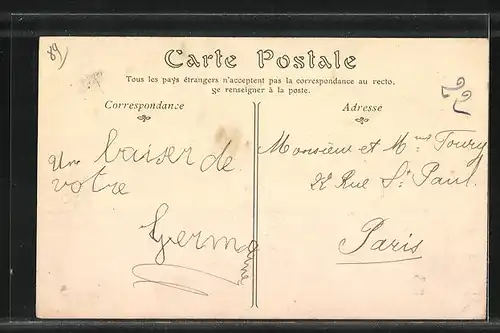 89
Carte Postale
Tous les pays étrangers n'acceptent pas la correspondance au recto.
se renseigner à la poste.
Correspondance
Un baiser de
votre
Germaine
Adresse
Monsieur et Mme Toury
22 Rue St Paul.
Paris